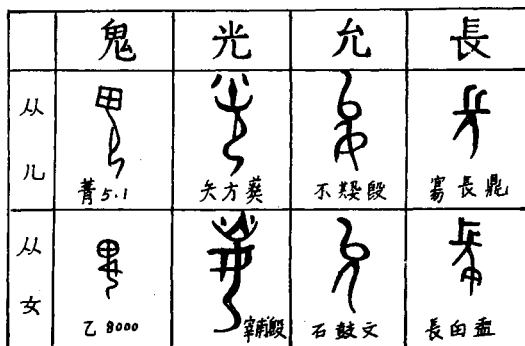 鬼 光 允 長
从儿
菁5.1 矢方彝 不𡢁𣪘 寡長鼎
从女
乙8000 宰甫𣪘 石鼓文 長白盉